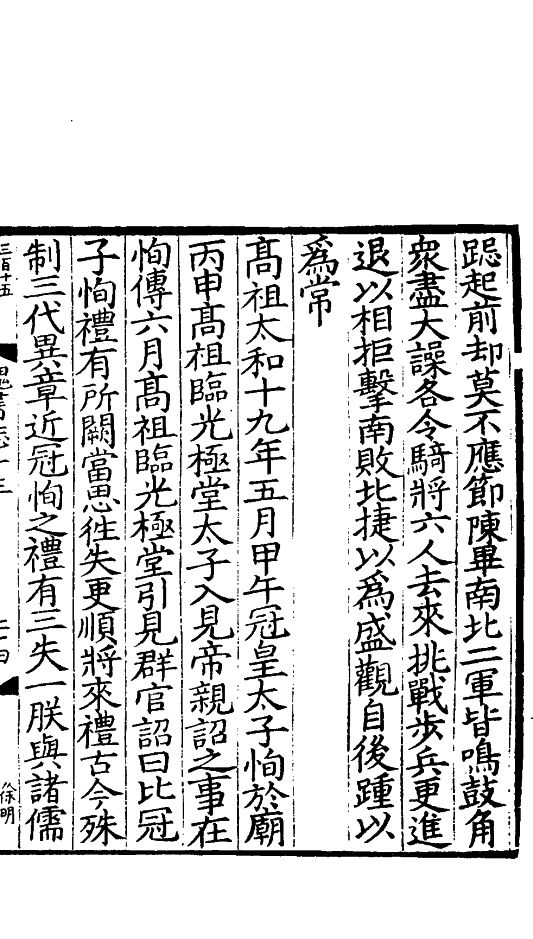 跽起前却莫不應節陳畢南北二軍皆鳴鼓角
衆盡大譟各令騎將六人去來挑戰步兵更進
退以相拒擊南敗北捷以爲盛觀自後踵以
爲常
髙祖太和十九年五月甲午冠皇太子恂於廟
丙申髙祖臨光極堂太子入見帝親詔之事在
恂傳六月髙祖臨光極堂引見群官詔曰比冠
子恂禮有所闕當思徃失更順將來禮古今殊
制三代異章近冠恂之禮有三失一朕與諸儒
三百十五
魏書志十三
二十四
徐明